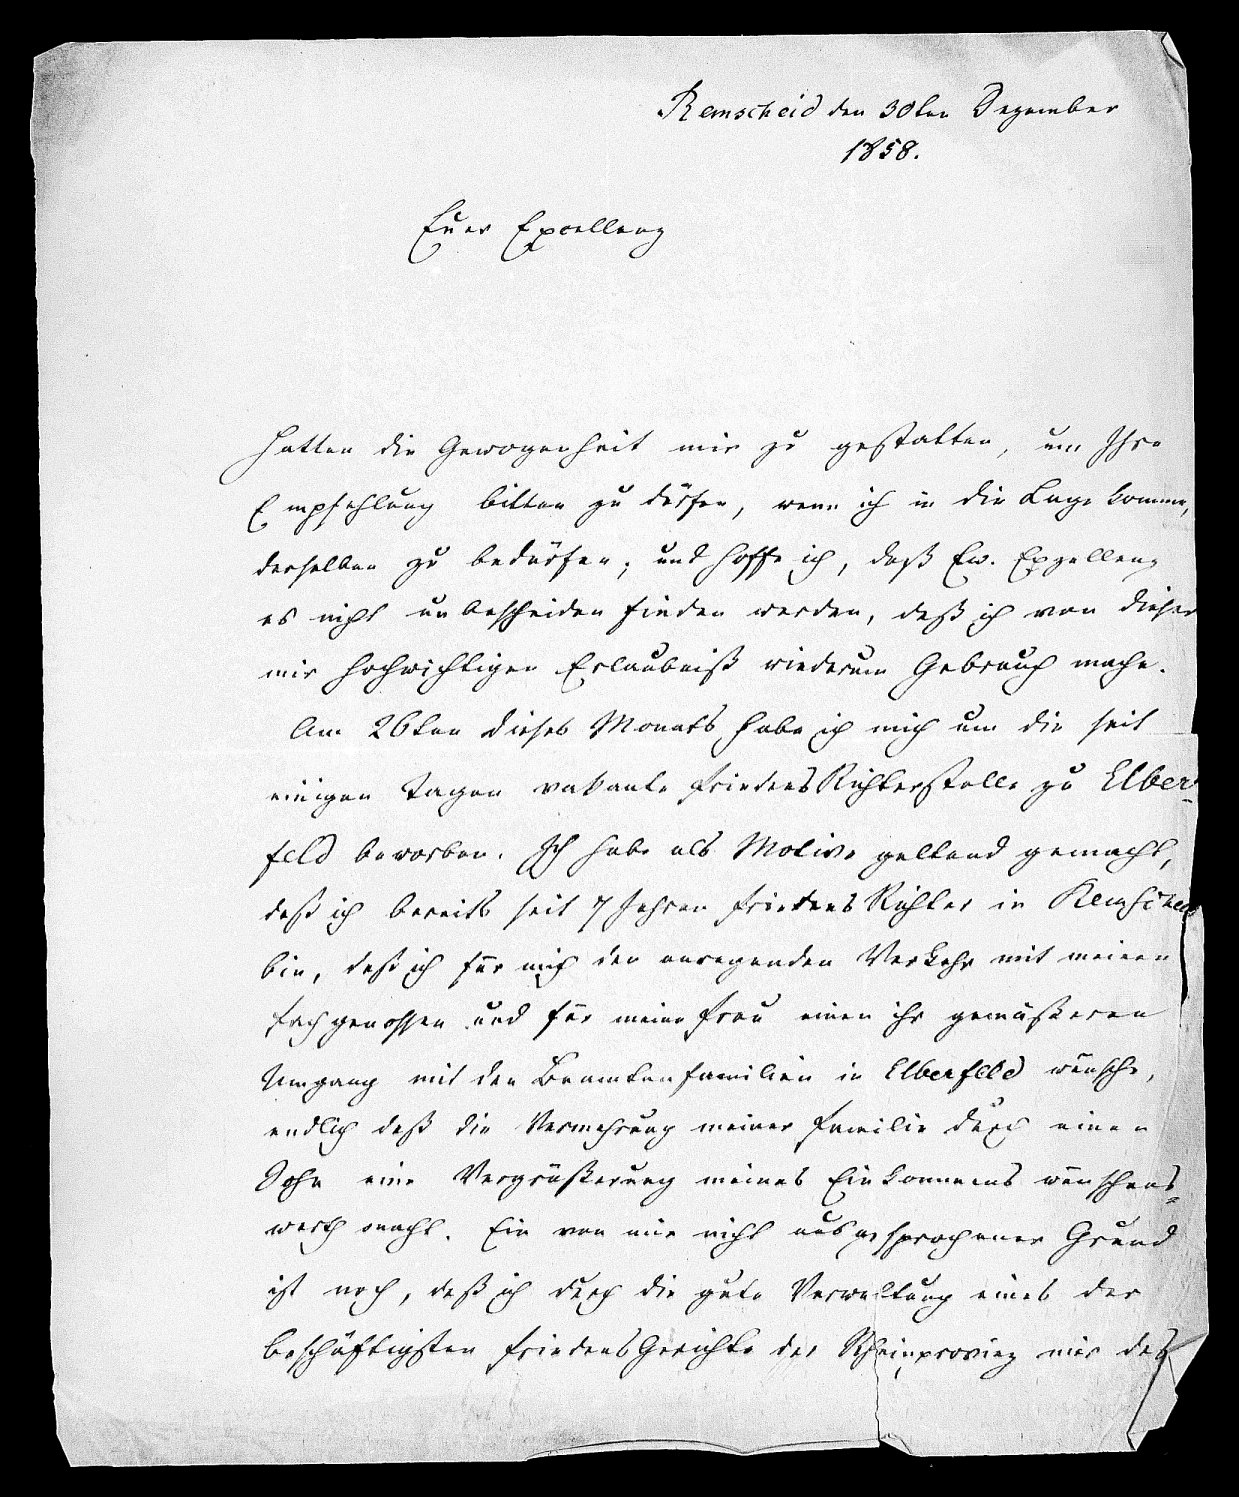 Remscheid den 30ten Dezember
1858.
Euer Excellenz
hatten die Gewogenheit mir zu gestatten, um Ihre
Empfehlung bitten zu dürfen, wenn ich in die Lage komme,
derselben zu bedürfen; und hoffe ich, daß Ew. Exzellenz
es nicht unbescheiden finden werden, daß ich von dieser
mir hochwichtigen Erlaubniß wiederum Gebrauch mache.
Am 26ten dieses Monats habe ich mich um die seit
einigen Tagen vakante FriedensRichterstelle zu Elber-
feld beworben. Ich habe als Motive geltend gemacht,
daß ich bereits seit 7 Jahren FriedensRichter in Remscheid
bin, daß ich für mich den anregenden Verkehr mit meinen
Fachgenossen und für meine Frau einen ihr gemäßeren
Umgang mit den Beamtenfamilien in Elberfeld wünsche,
endlich daß die Vermehrung meiner Familie durch einen
Sohn eine Vergrößerung meines Einkommens wünschens-
werth macht. Ein von mir nicht ausgesprochener Grund
ist noch, daß ich durch die gute Verwaltung eines der
beschäftigsten FriedensGerichte der Rheinprovinz mir des